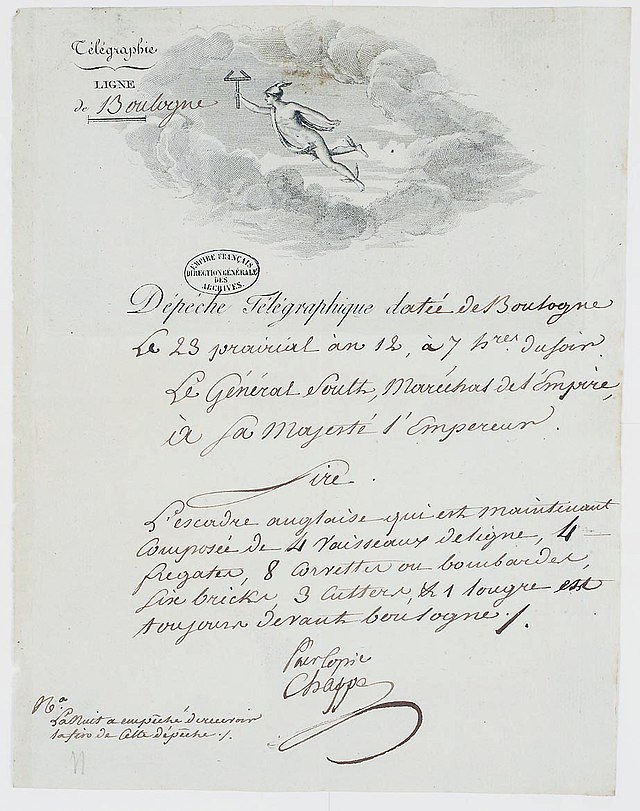 Télégraphie
LIGNE
de Boulogne
EMPIRE FRANÇAIS
DIRECTION GÉNÉRALE
DES
ARCHIVES.
Dépêche Télégraphique datée de Boulogne
Le 23 prairial an 12, à 7 hres. du soir.
Le Général Soult, Maréchal de l'Empire,
à Sa Majesté l'Empereur.
Sire.
L'escadre anglaise qui est maintenant
composée de 4 Vaisseaux de ligne, 4
fregates, 8 corvettes ou bombardes,
six bricks, 3 cutters, & 1 lougre est
toujours devant boulogne ./.
Pour Copie
Chappe
Na.
La Nuit a empêché de recevoir
la fin de cette dépêche ./.